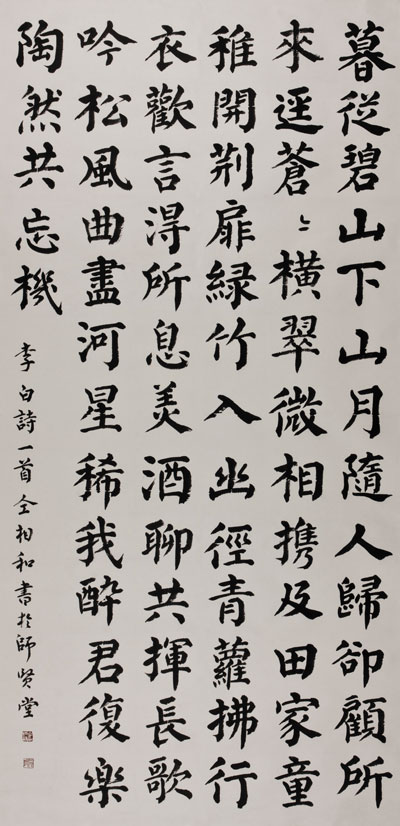 暮從碧山下山月隨人歸卻顧所
來逕蒼〻橫翠微相携及田家童
稚開荆扉綠竹入幽徑青蘿拂行
衣歡言得所息美酒聊共揮長歌
吟松風曲盡河星稀我醉君復樂
陶然共忘機
李白詩一首仝柏和書於師賢堂